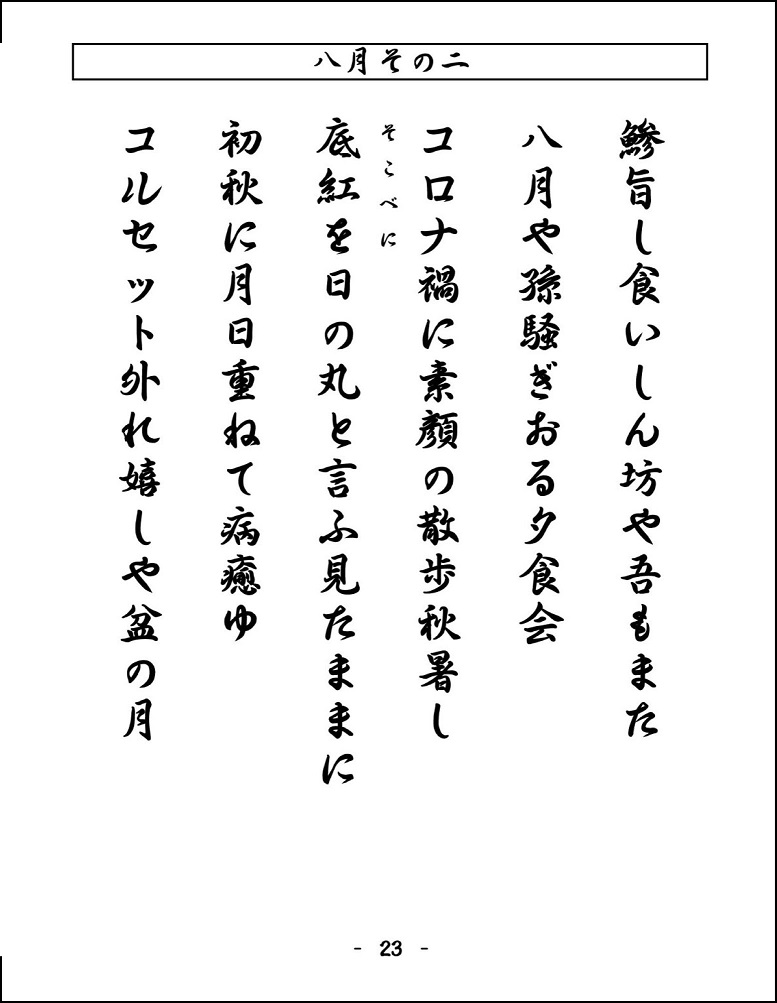 八月その二
鯵旨し食いしん坊や吾もまた
八月や孫騒ぎおる夕食会
コロナ禍に素顔の散歩秋暑し
そこべに
底紅を日の丸と言ふ見たままに
初秋に月日重ねて病癒ゆ
コルセット外れ嬉しや盆の月
- 23 -